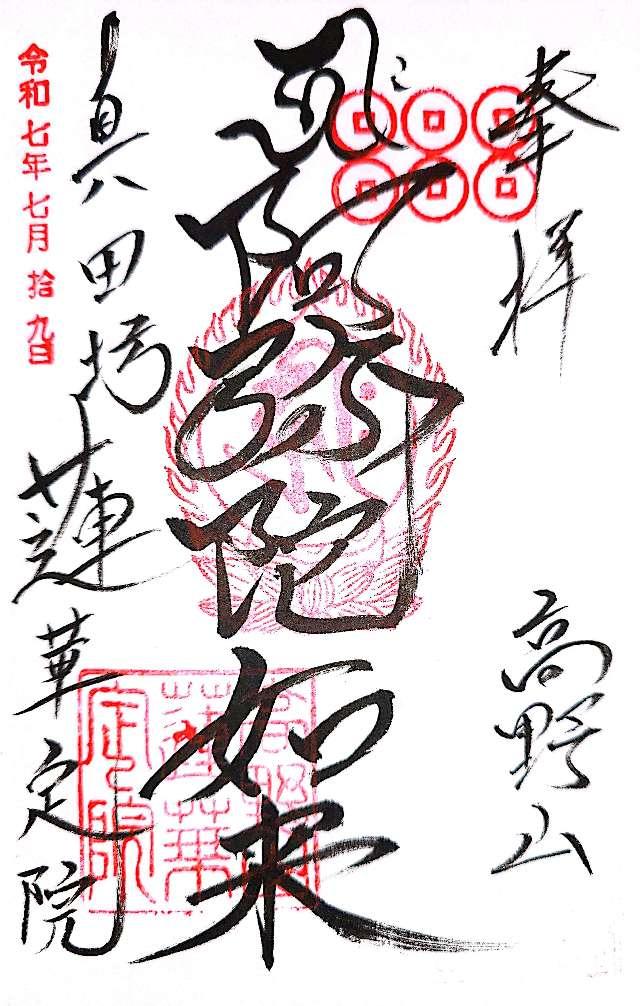 奉拝
高野山
阿弥陀如来
真田坊 蓮華定院
令和七年七月拾九日
蓮華
定院